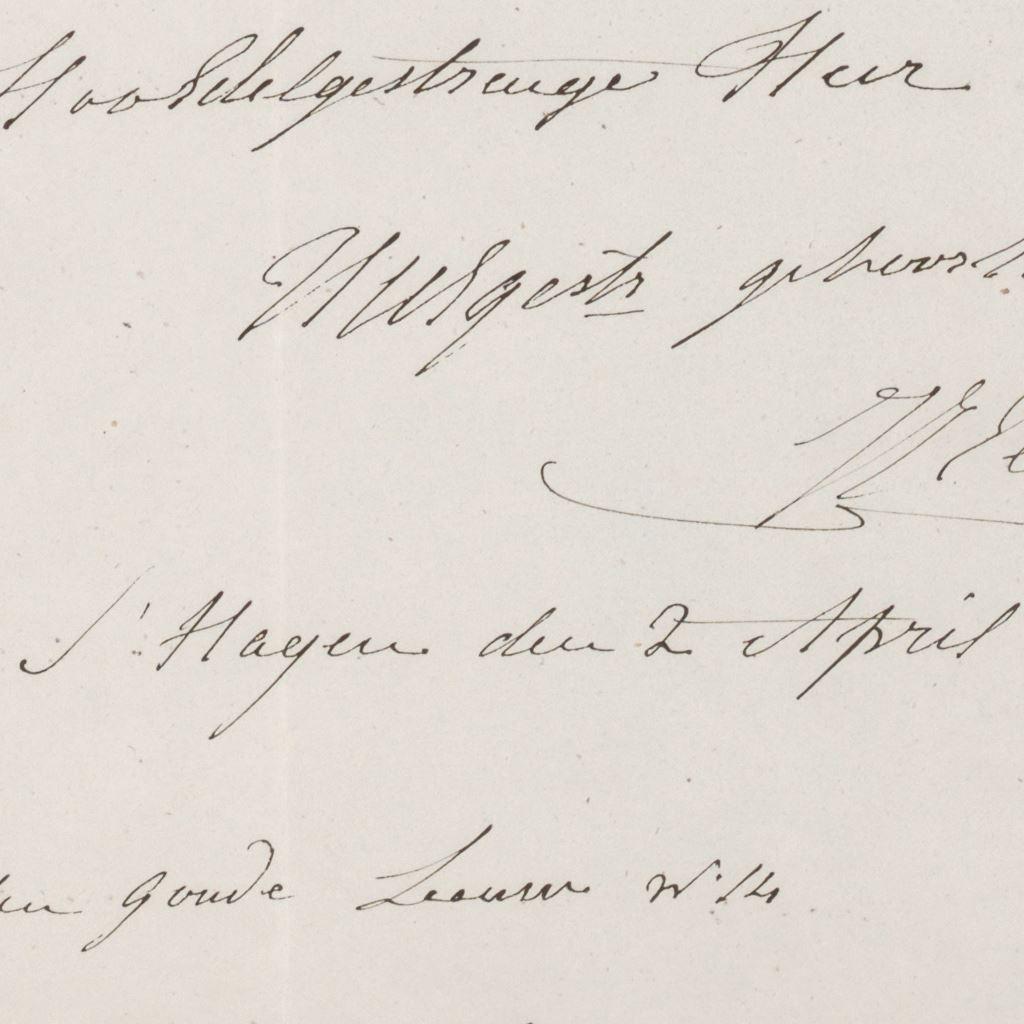 HoogEdelgestrenge Heer
UWEgestr gehoor
S' Hagen den 2 April
Goude Leeuw No 14